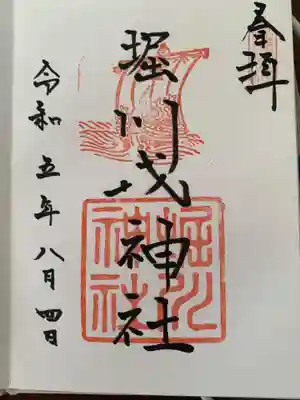 奉拝
堀川戎神社
令和五年八月四日
堀川
神社